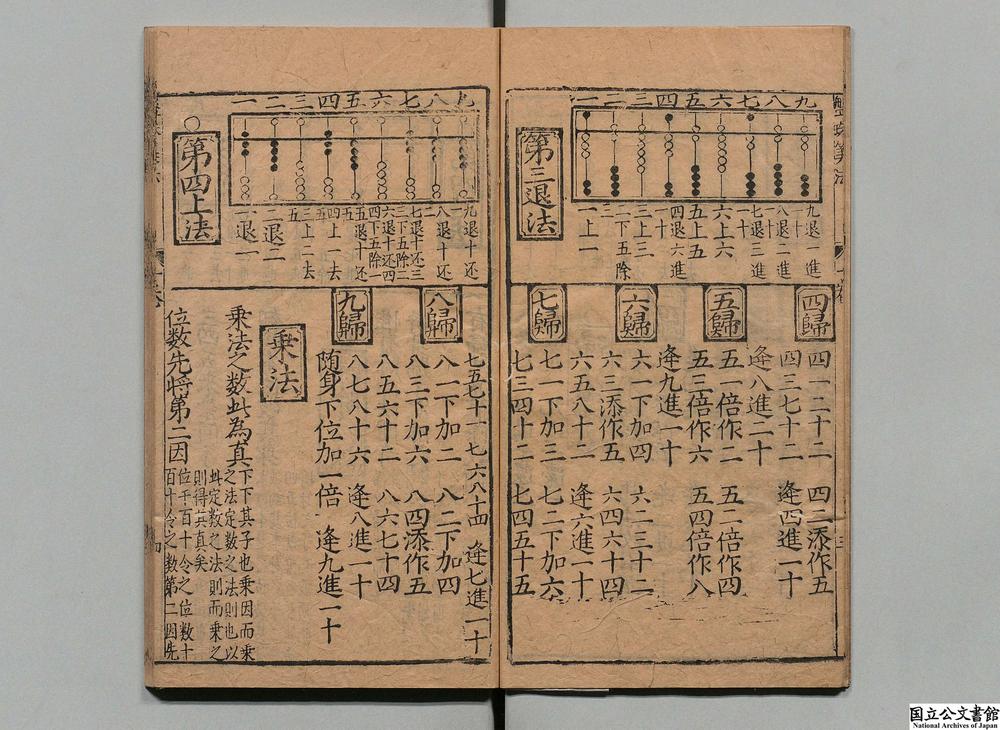 九八七六五四三二一
第三退法
九退一進十
八退二進十
七退三進十
六上六
五上五
四退六進一
三上三
二下五除
一上一
四歸
四一二十二 四二添作五
四三七十二 逢四進一十
逢八進二十
五歸
五一倍作二 五二倍作四
五三倍作六 五四倍作八
逢九進一十
六歸
六一下加四 六二三十二
六三添作五 六四六十四
六五八十二 逢六進一十
七歸
七一下加三 七二下加六
七三四十二 七四五十五
九八七六五四三二一
第四上法
九退十还一
八退十还二
七退十还三
三下五除二
六退十还四
四下五除一
五退十还五
四上一去五
三上二去五
二退二
一退一
七五七十一 七六八十四 逢七進一十
八歸
八一下加二 八二下加四
八三下加六 八四添作五
八五六十二 八六七十四
八七八十六 逢八進一十
九歸
随身下位加一倍 逢九進一十
乘法
乘法之数此為真
下下其子也乘因而乘
之法定数之法則也以
此定数之法則而乘之
則得其真矣
位数先将第二因
位乎百十令之位数十
百十令之数第二因先
国立公文書館
National Archives of Japan